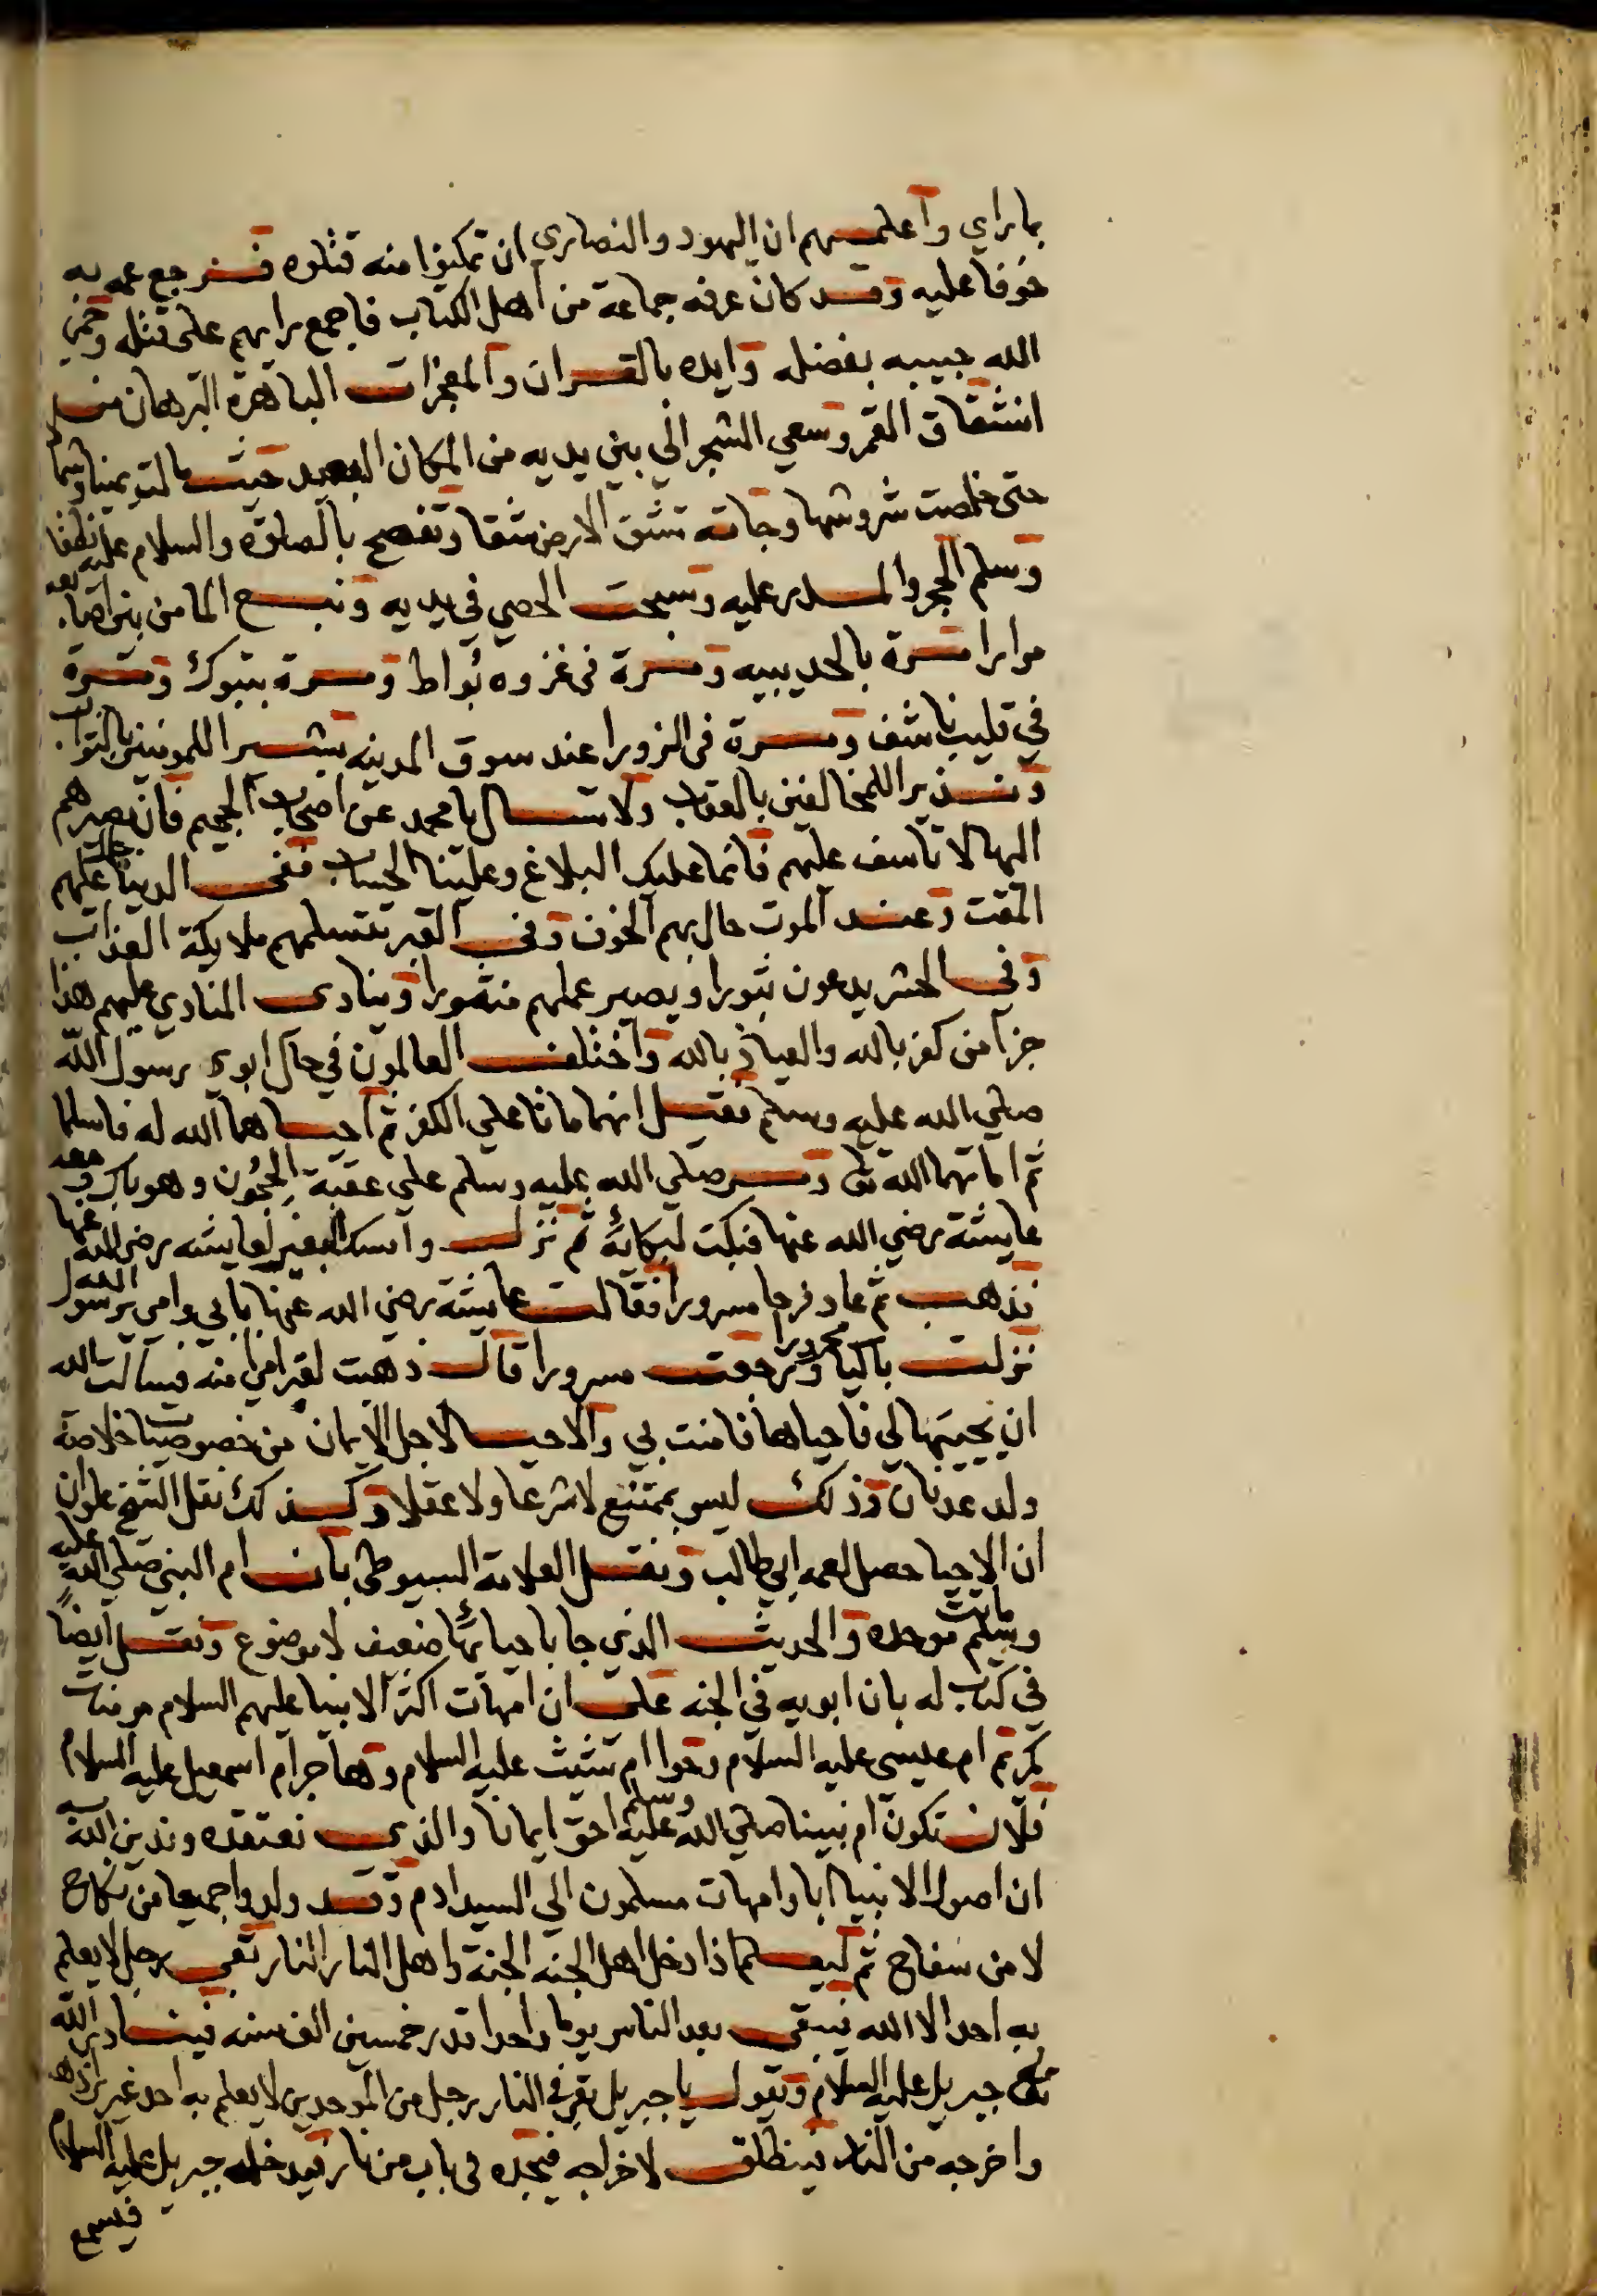 بما راي واعلمهم ان اليهود والنصاري ان تمكنوا منه قتلوه فرجع عمه به
خوفا عليه وقد كان عرفه جماعة من اهل الكتاب فاجمع رايهم على قتله وحمي
الله حبيبه بفضله وايده بالقران والمعجزات الباهرة البرهان من
انشقاق القمر وسعي الشجر الي بين يديه من المكان البعيد حيث مالت يمينا وشمالا
حتى خلصت شروشها وجاته تشق الارض شقا وتفصح بالصلوة والسلام عليه نطقا
وسلم الحجر والمدر عليه وسبحت الحصي في يديه ونبع الما من بين اصابعه
مرارا مرة بالحديبيه ومرة فى غزوه بُواط ومرة بتبوك ومرة
في قليب ناشف ومرة فى الزورا عند سوق المدينه بشيرا للمومنين بالثواب
ونذيرا للمخالفين بالعقاب ولا تسال يا محمد عن اصحاب الجحيم فان مصيرهم
اليها لا تاسف عليهم فانما عليك البلاغ وعلينا الحساب ففى الدنيا عليهم
المقت وعند الموت حال بهم الخوف وفى القبر تتسلمهم ملايكة العذاب
وفى الحشر يدعون ثبورا ويصير عملهم منثورا وينادى المنادي عليهم هذا
جزآ من كفر بالله والعياذ بالله واختلف العالمون في حال ابوى رسول الله
صلي الله عليه وسلم فقيل انهما ماتا علي الكفر ثم احياهما الله له فاسلما
ثم اماتهما الله تعالى ومر صلي الله عليه وسلم علي عقبة الحجُون وهو باك ومعه
عايشة رضي الله عنها فبكت لبكائه ثم نزل وامسك البعير لعايشه رضي الله عنها
فذهب ثم عاد فرحا مسرورا فقالت عايشة رضي الله عنها بابي وامي يرسول الله
نزلت باكيا محزونا ورجعت مسرورا قال ذهبت لقبر امي امنه فسالت الله
ان يحييها لي فاحياها فامنت بي والاحيا لاجل الايمان من خصوصيات خلاصة
ولد عدنان وذلك ليس بممتنع لا شرعا ولا عقلا وكذلك نقل الشيخ علوان
ان الاحيا حصل لعمه ابي طالب ونقل العلامة السيوطي بان ام النبي صلي الله عليه
وسلم ماتت موحده والحديث الذي جا باحيائها ضعيف لا موضوع ونقل ايضًا
في كتاب له بان ابويه في الجنه على ان امهات اكثر الانبيا عليهم السلام مومنات
كمريم ام عيسى عليه السلام وحوا ام شيث عليه السلام وهاجر ام اسمعيل عليه السلام
فلان تكون ام نبينا صلي الله عليه وسلم احق ايمانا والذى نعتقده وندين الله به
ان اصول الانبيا ابا وامهات مسلمون الي السيد ادم وقد ولدوا جميعا من نكاح
لا من سفاح ثم ليعلم اذا دخل اهل الجنه الجنة واهل النار النار بقي رجل لا يعلم
به احد الا الله فيبقى بعد الناس يوما واحدا قدر خمسين الف سنه فينادي الله
تعالى جبريل عليه السلام ويقول يا جبريل بقي في النار رجل من الموحدين لا يعلم به احد غيري اذهب
واخرجه من النار فينطلق لاخراجه فيجده فى باب من نار فيدخله جبريل عليه السلام
فيسمع